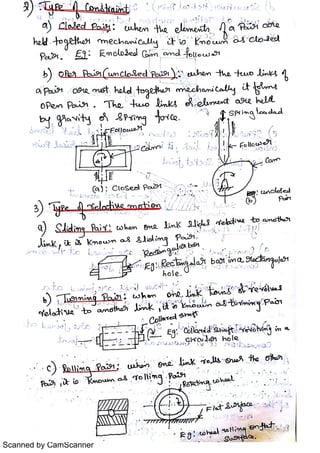 2) : Type of Constraint
a) Closed Pair: when the elements of a Pair are
held together mechanically it is known as closed
Pair. Eg: Enclosed Cam and follower
b) Open Pair (unclosed Pair): when the two links of
a pair are not held together mechanically it forms
open Pair. The two links of element are held
by gravity or spring force.
Spring loaded
Follower
Follower
Cam
Cam
(a): Closed Pair
(b) unclosed Pair
3) Type of relative motion
a) Sliding Pair: when one link slides relative to another
link, it is known as sliding Pair.
Rectangular bar
Eg: Rectangular bar in a rectangular
hole.
b) Turning Pair: when one link turns or revolves
relative to another link, it is known as turning Pair
Collared shaft
Eg: Collared shaft revolving in a
circular hole
c) Rolling Pair: when one link rolls over the other
Pair, it is known as rolling Pair
Rotating wheel
Flat Surface
Eg: wheel rolling on flat
Surface.
Scanned by CamScanner